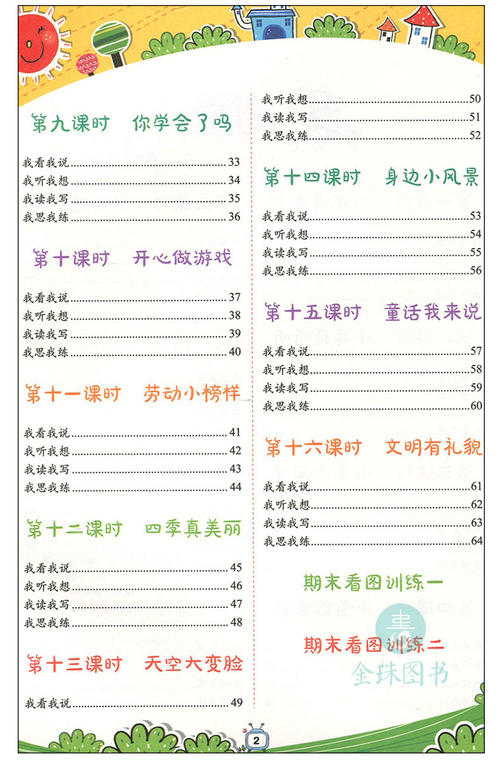 第九课时 你学会了吗
我看我说 33
我听我想 34
我读我写 35
我思我练 36
第十课时 开心做游戏
我看我说 37
我听我想 38
我读我写 39
我思我练 40
第十一课时 劳动小榜样
我看我说 41
我听我想 42
我读我写 43
我思我练 44
第十二课时 四季真美丽
我看我说 45
我听我想 46
我读我写 47
我思我练 48
第十三课时 天空大变脸
我看我说 49
我听我想 50
我读我写 51
我思我练 52
第十四课时 身边小风景
我看我说 53
我听我想 54
我读我写 55
我思我练 56
第十五课时 童话我来说
我看我说 57
我听我想 58
我读我写 59
我思我练 60
第十六课时 文明有礼貌
我看我说 61
我听我想 62
我读我写 63
我思我练 64
期末看图训练一
期末看图训练二
金珠图书
2